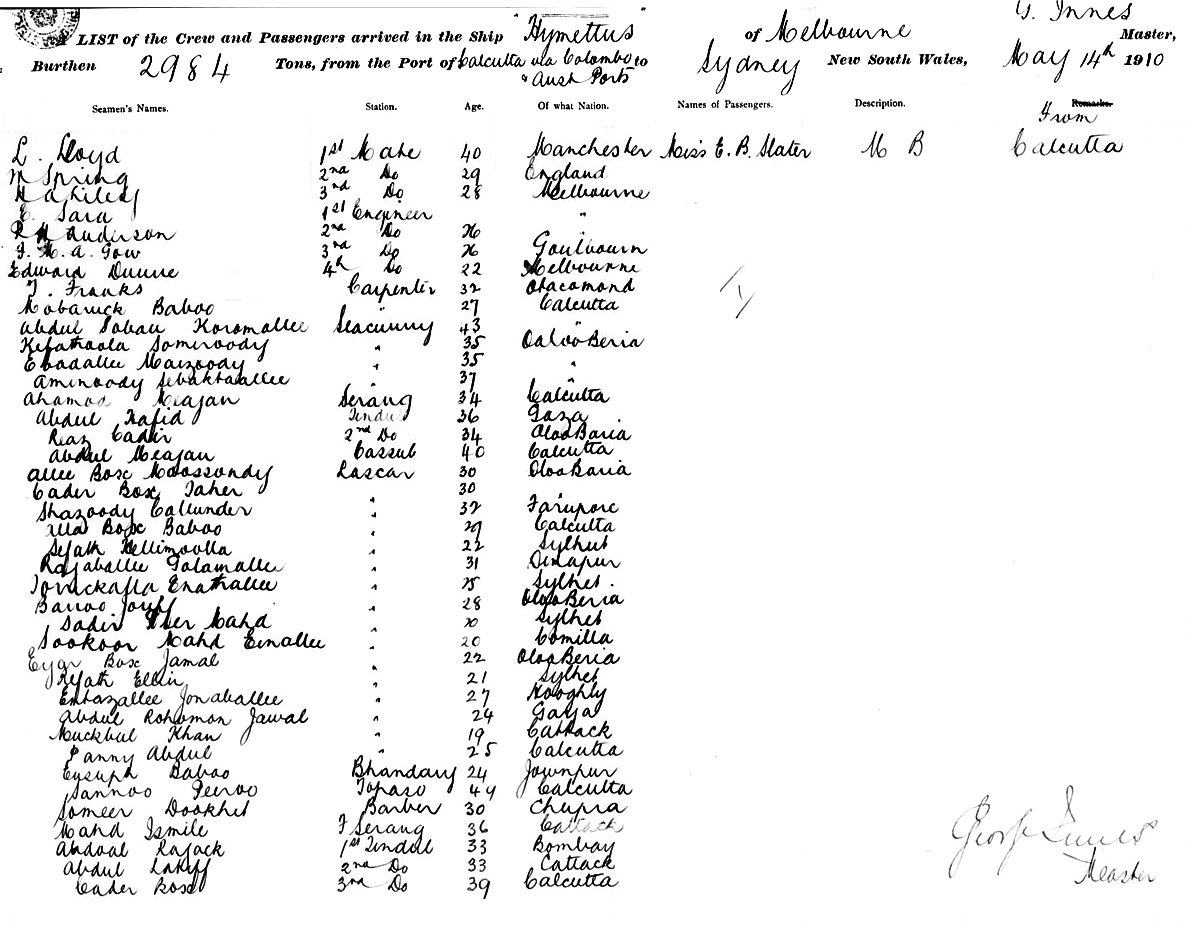 "Hymettus" G. Innes
A LIST of the Crew and Passengers arrived in the Ship of Melbourne Master,
Burthen 2984 Tons, from the Port of Calcutta via Colombo to Sydney New South Wales, May 14th 1910
& Aust Ports
Seamen's Names. Station. Age. Of what Nation. Names of Passengers. Description. Remarks.
From
L. Lloyd 1st Mate 40 Manchester Miss E. B. Slater M B Calcutta
Spring 2nd Do 29 England
3rd Do 28 Melbourne
E. Sara 1st Engineer "
Anderson 2nd Do 26
F. M. A. Gow 3rd Do 26 Goulbourn
Edward Dunne 4th Do 22 Melbourne
J. Franks Carpenter 32
Mobaruck Baboo " 27 Calcutta
Abdul Soban Koromallee Seacunny 43 "
Somiroody " 35
Ebadallee Maizoody " 35 "
Aminoody " 37 "
Ahamod Meajan Serang 34 Calcutta
Abdul Hafid Tindul 36 Gaza
Reaz Cader 2nd Do 34 OlooBaria
Abdul Meajan Cassub 40 Calcutta
Allee Box Moossondy Lascar 30 OlooBaria
Cader Box Taher " 30 "
Shazoody Callunder " 32
Box Baboo " 29 Calcutta
Sefath " 22 Sylhet
Rajaballee Golamallee " 31 Dinapur
Enathallee " 25 Sylhet.
Baroo " 28 OlooBeria
Sadir Mahd " 20 Sylhet
Sookoor Mahd Emallee " 20 Comilla
Box Jamal " 22 OlooBeria
Ellin " 21 Sylhet
Jonaballee " 27 Hooghly
Abdul Rohomon Jawal " 24 Gaya
Muckbul Khan " 19 Cattack
Panny Abdul " 25 Calcutta
Eusuph Baboo Bhandary 24 Jownpur
Sannoo Peeroo Topaso 49 Calcutta
Someer Dookhit Barber 30 Chupra
Mahd Ismile F Serang 36 Cattack
Abdoul Rajack 1st Tindul 33 Bombay
Abdul Latiff 2nd Do 33 Cattack
Cader Box 3rd Do 39 Calcutta
George Innes
Master